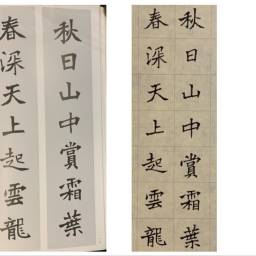 秋日山中賞霜葉
春深天上起雲龍
秋日山中賞霜葉
春深天上起雲龍